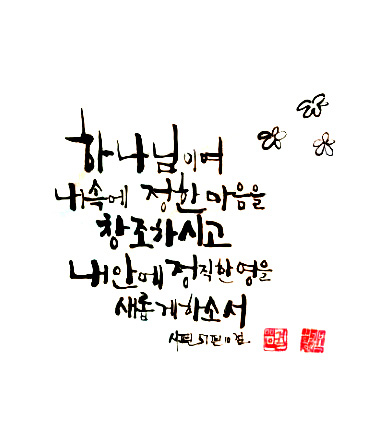 하나님이여
내속에 정한마음을
창조하시고
내안에정직한영을
새롭게하소서
시편 51편 10절